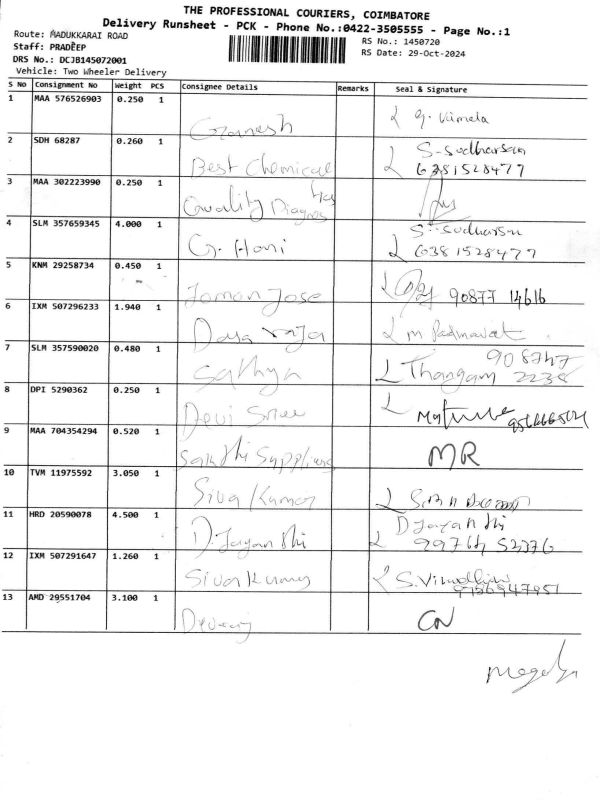 THE PROFESSIONAL COURIERS, COIMBATORE
Delivery Runsheet - PCK - Phone No.:0422-3505555 - Page No.:1
Route: MADUKKARAI ROAD
RS No.: 1450720
Staff: PRADEEP
RS Date: 29-Oct-2024
DRS No.: DCJB145072001
Vehicle: Two Wheeler Delivery
S No Consignment No Weight PCS Consignee Details Remarks Seal & Signature
1 MAA 576526903 0.250 1 Ganesh G. Vimala
2 SDH 68287 0.260 1 Best Chemical S-Sudharsan
6381528477
3 MAA 302223990 0.250 1 Quality Diagnos
4 SLM 357659345 4.000 1 G. Hani S. Sudharsan
6381528477
5 KNM 29258734 0.450 1 Jomon Jose 90877 14616
6 IXM 507296233 1.940 1 Daya raja M
7 SLM 357590020 0.480 1 Sathya Thangam 908747
2238
8 DPI 5290362 0.250 1 Devi Sree
9 MAA 704354294 0.520 1 Sakthi Suppliers MR
10 TVM 11975592 3.050 1 Siva Kumar
11 HRD 20590078 4.500 1 D. Jayanthi D Jayanthi
12 IXM 507291647 1.260 1 Sivakumar
13 AMD 29551704 3.100 1 Devaraj CN